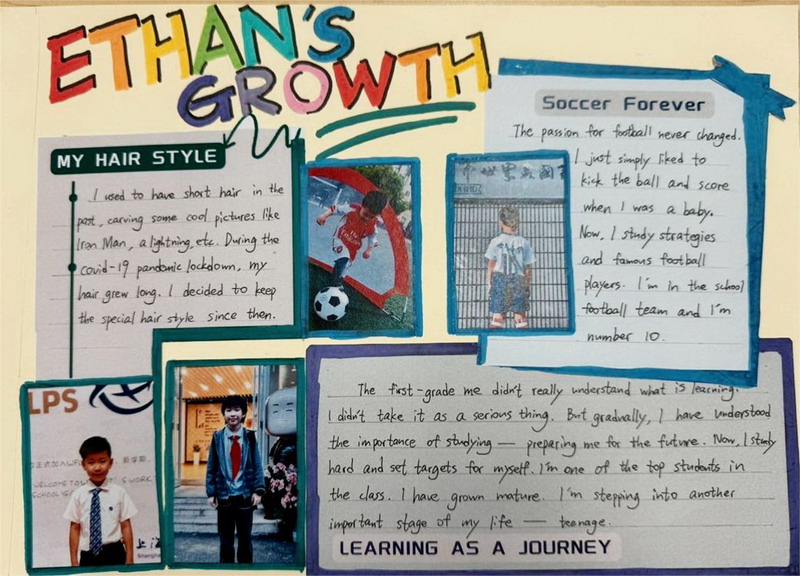 ETHAN'S
GROWTH
MY HAIR STYLE
I used to have short hair in the
past, carving some cool pictures like
Iron Man, a lightning, etc. During the
covid-19 pandemic lockdown, my
hair grew long. I decided to keep
the special hair style since then.
Soccer Forever
The passion for football never changed.
I just simply liked to
kick the ball and score
when I was a baby.
Now, I study strategies
and famous football
players. I'm in the school
football team and I'm
number 10.
LPS
The first-grade me didn't really understand what is learning.
I didn't take it as a serious thing. But gradually, I have understood
the importance of studying — preparing me for the future. Now, I study
hard and set targets for myself. I'm one of the top students in
the class. I have grown mature. I'm stepping into another
important stage of my life — teenage.
LEARNING AS A JOURNEY